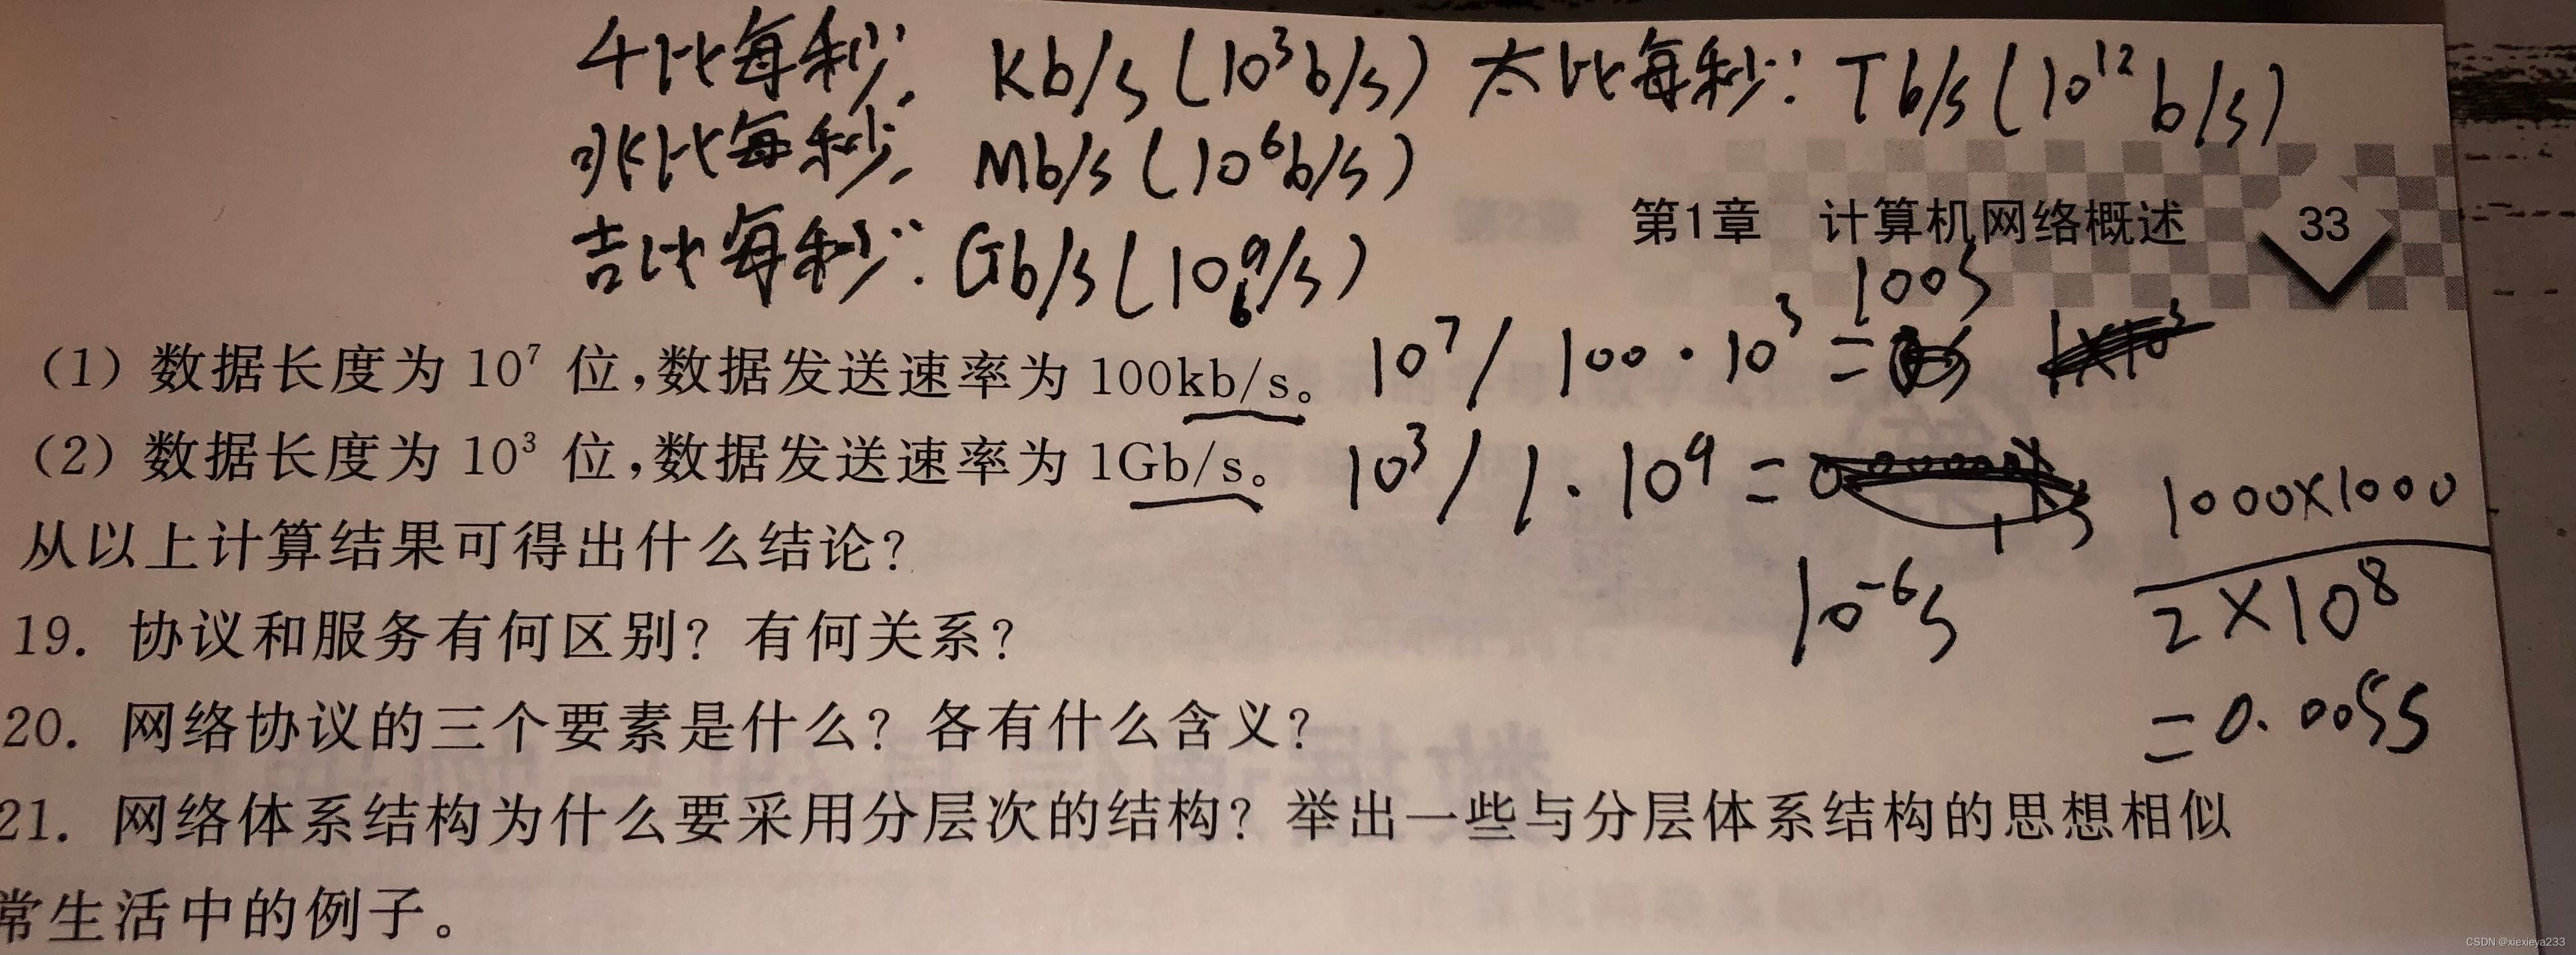 千比每秒: Kb/s (10³b/s) 太比每秒: Tb/s (10¹²b/s)
兆比每秒: Mb/s (10⁶b/s)
吉比每秒: Gb/s (10⁹b/s)
第1章 计算机网络概述 33
(1) 数据长度为 10⁷ 位,数据发送速率为 100kb/s。 10⁷/100·10³ = 100s
(2) 数据长度为 10³ 位,数据发送速率为 1Gb/s。 10³/1·10⁹ =
10⁻⁶s
1000×1000
2×10⁸
=0.005s
从以上计算结果可得出什么结论?
19. 协议和服务有何区别? 有何关系?
20. 网络协议的三个要素是什么? 各有什么含义?
21. 网络体系结构为什么要采用分层次的结构? 举出一些与分层体系结构的思想相似
常生活中的例子。
CSDN @xiexieya233